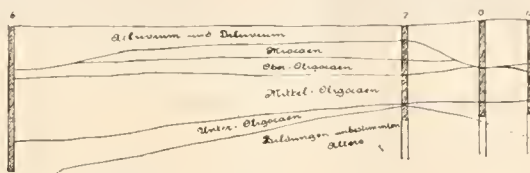 6 7 8
Alluvium und Diluvium
Miocaen
Ober-Oligocaen
Mittel-Oligocaen
Unter-Oligocaen
Bildungen unbestimmten
Alters